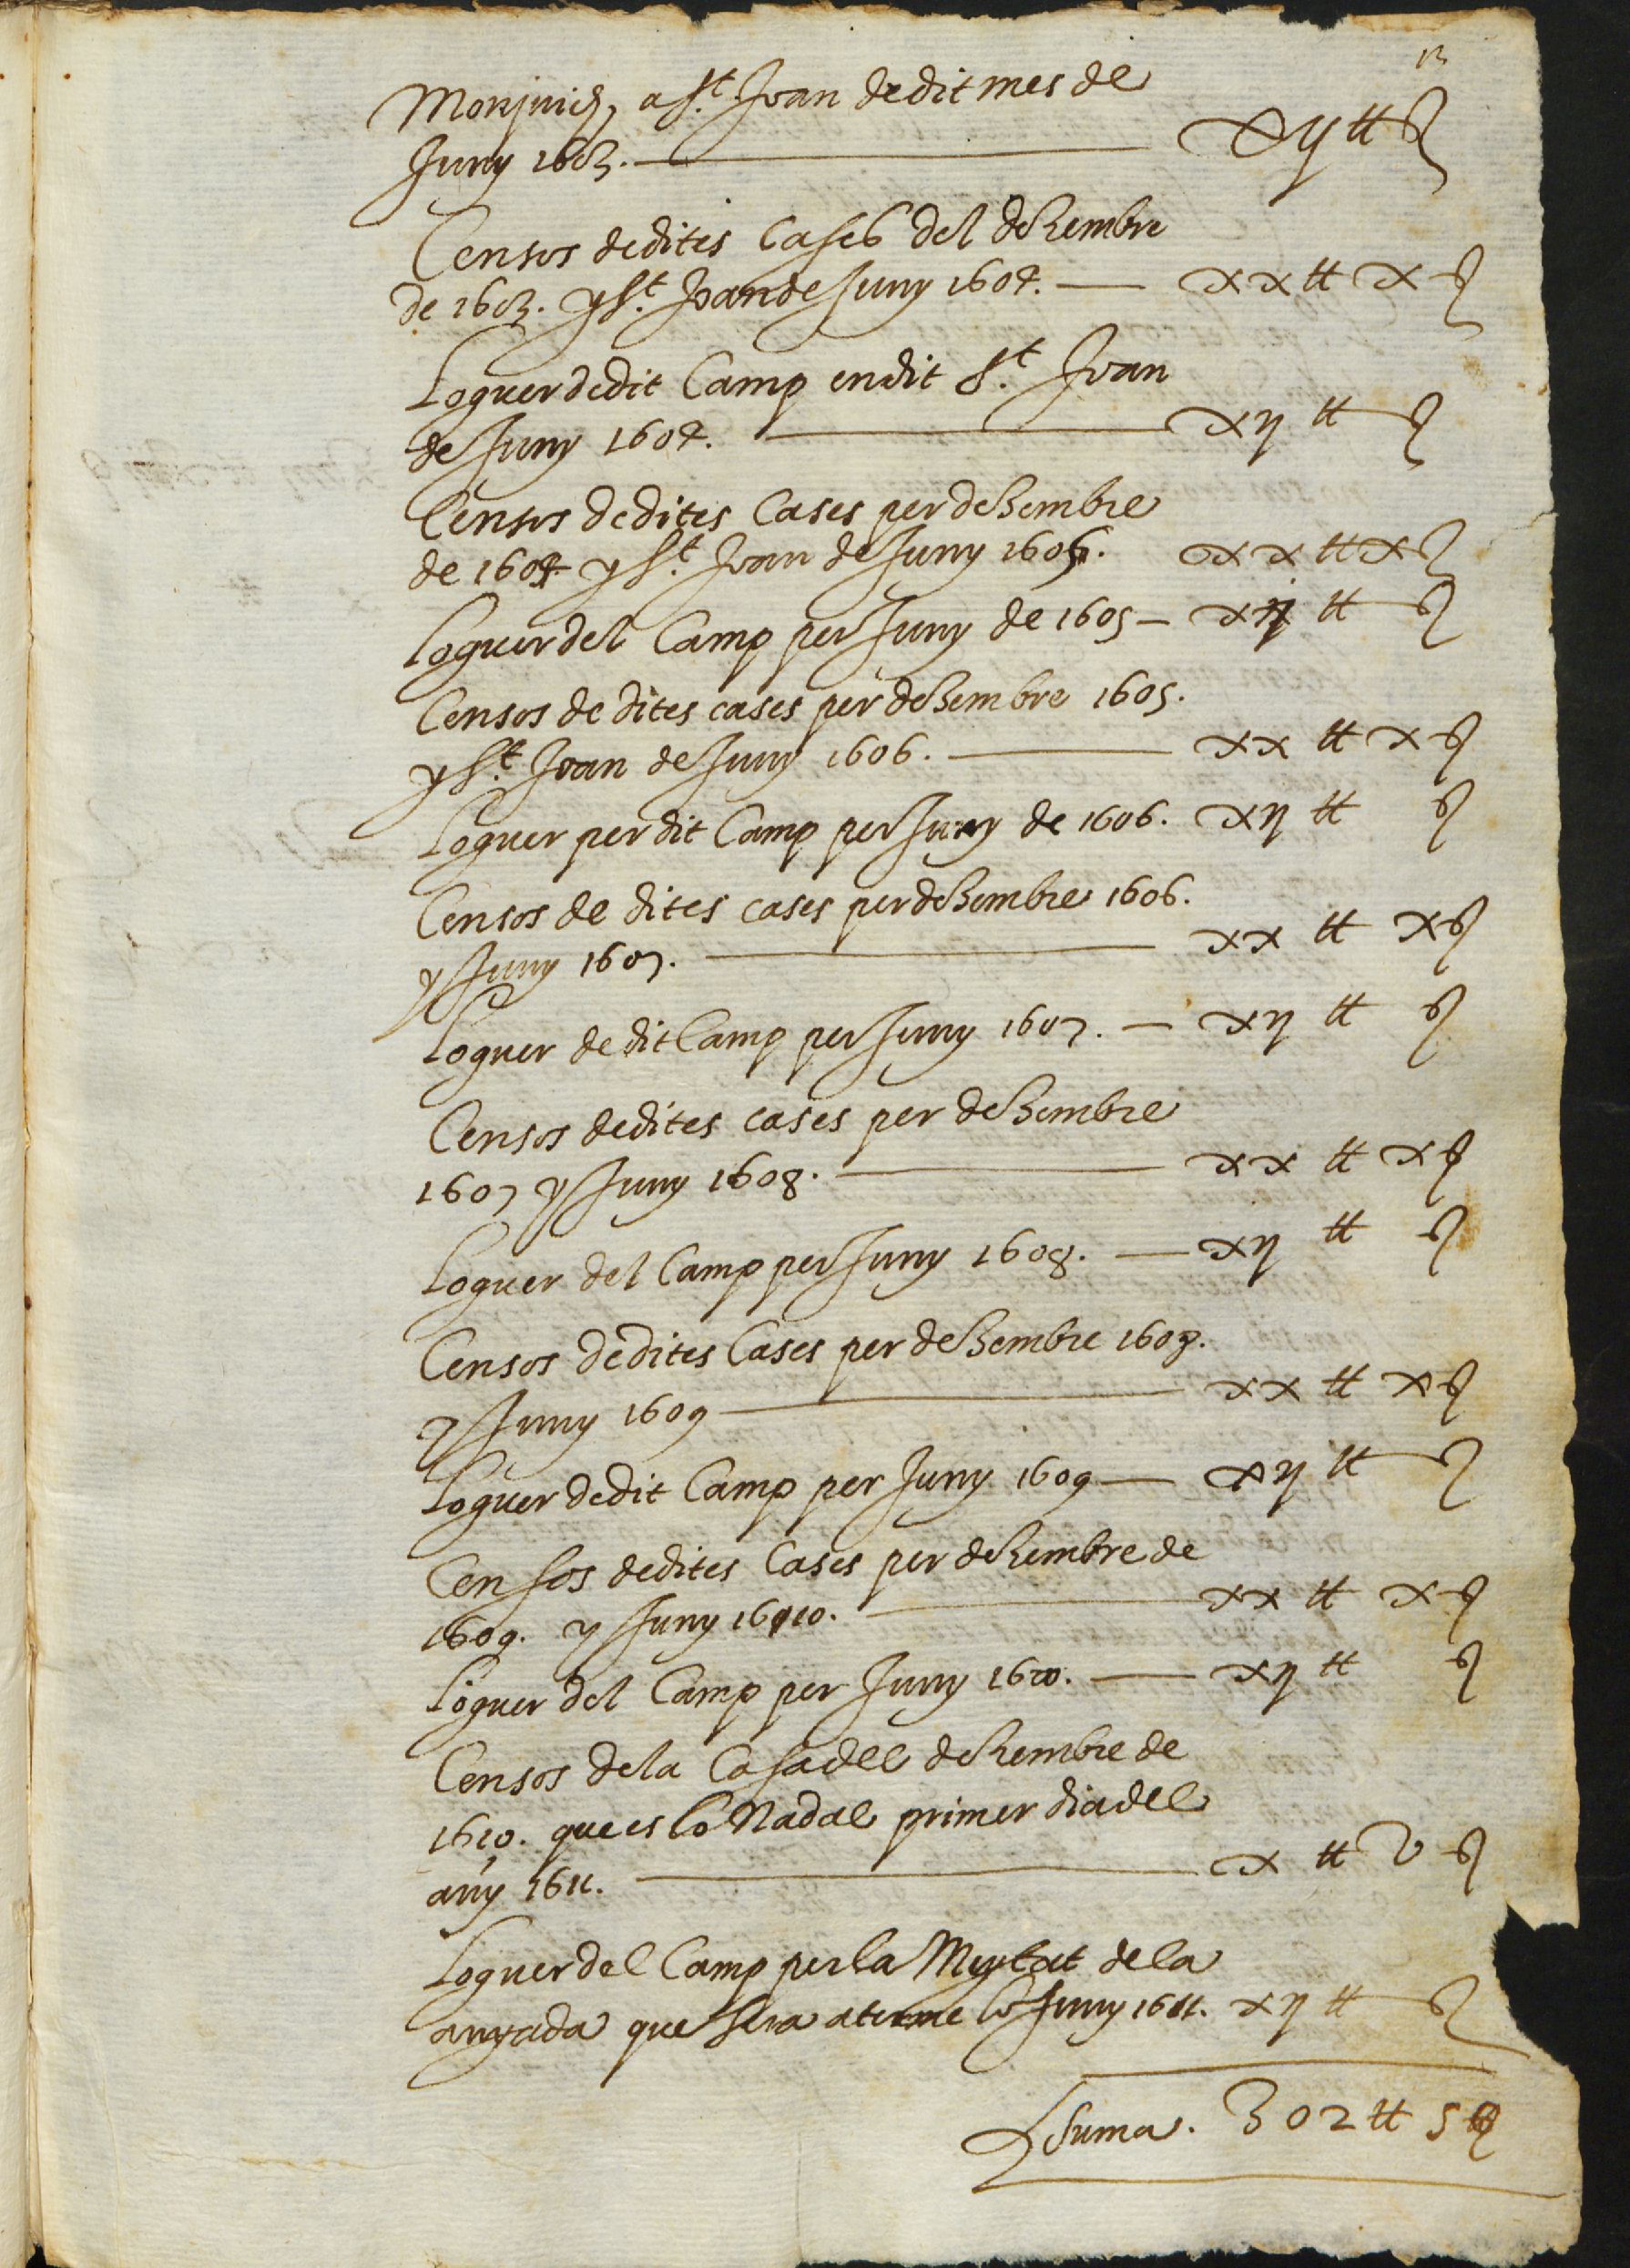 13
Monjuich, a St. Joan de dit mes de
Juny 1603. — xij ₶ ẞ
Censos de dites Cases del dehembre
de 1603. y St. Joan de Juny 1604. — xx ₶ x ẞ
Loguer de dit Camp en dit St. Joan
de Juny 1604. — xij ₶ ẞ
Censos de dites Cases per dehembre
de 1604. y St. Joan de Juny 1605. xx ₶ x ẞ
Loguer del Camp per Juny de 1605 — xij ₶ ẞ
Censos de dites cases per dehembre 1605.
y St. Joan de Juny 1606. — xx ₶ x ẞ
Loguer per dit Camp per Juny de 1606. xij ₶ ẞ
Censos de dites cases per dehembre 1606.
y Juny 1607. — xx ₶ x ẞ
Loguer de dit Camp per Juny 1607. — xij ₶ ẞ
Censos de dites cases per dehembre
1607 y Juny 1608. — xx ₶ x ẞ
Loguer del Camp per Juny 1608. — xij ₶ ẞ
Censos de dites Cases per dehembre 1608.
y Juny 1609 — xx ₶ x ẞ
Loguer de dit Camp per Juny 1609 — xij ₶ ẞ
Censos de dites Cases per dehembre de
1609. y Juny 1610. — xx ₶ x ẞ
Loguer del Camp per Juny 1610. — xij ₶ ẞ
Censos de la Casa del dehembre de
1610. que es lo Nadal primer dia del
any 1611. — x ₶ v ẞ
Loguer del Camp per la Meytat de la
anyada que sera a terme lo Juny 1611. xij ₶ ẞ
Suma. 302 ₶ 5 ẞ